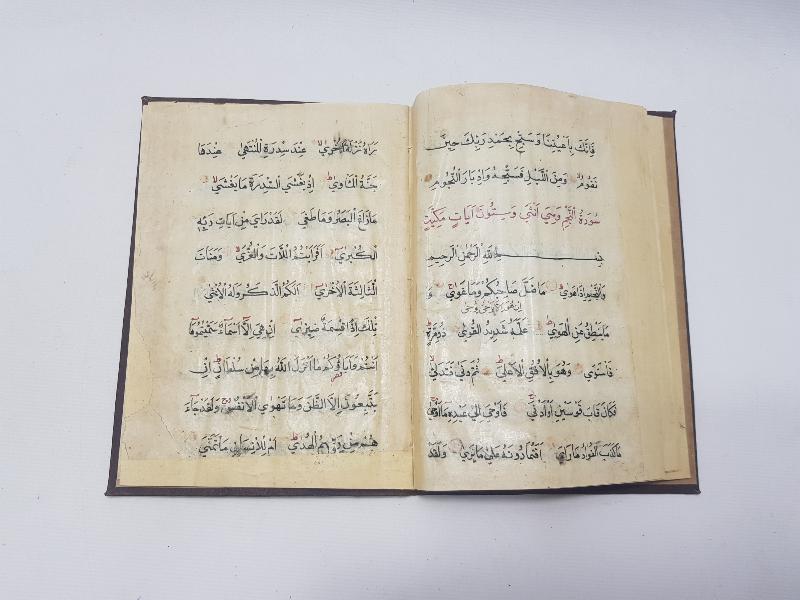 فَإِنَّكَ بِأَعْيُنِنَا وَسَبِّحْ بِحَمْدِ رَبِّكَ حِينَ
تَقُومُ وَمِنَ اللَّيْلِ فَسَبِّحْهُ وَإِدْبَارَ النُّجُومِ
سُورَةُ النَّجْمِ وَهِيَ اثْنَتَى وَسِتُّونَ آيَاتٍ مَكِّيَّةٍ
بِسْمِ اللَّهِ الرَّحْمٰنِ الرَّحِيمِ
وَالنَّجْمِ إِذَا هَوَىٰ مَا ضَلَّ صَاحِبُكُمْ وَمَا غَوَىٰ وَ
إِنْ هُوَ إِلَّا وَحْيٌ يُوحَىٰ
مَا يَنْطِقُ عَنِ الْهَوَىٰ عَلَّمَهُ شَدِيدُ الْقُوَىٰ ذُو مِرَّةٍ
فَاسْتَوَىٰ وَهُوَ بِالْأُفُقِ الْأَعْلَىٰ ثُمَّ دَنَىٰ فَتَدَلَّىٰ
فَكَانَ قَابَ قَوْسَيْنِ أَوْ أَدْنَىٰ فَأَوْحَىٰ إِلَىٰ عَبْدِهِ مَا أَوْحَىٰ
مَا كَذَبَ الْفُؤَادُ مَا رَأَىٰ أَفَتُمَارُونَهُ عَلَىٰ مَا يَرَىٰ وَلَقَدْ
رَآهُ نَزْلَةً أُخْرَىٰ عِنْدَ سِدْرَةِ الْمُنْتَهَىٰ عِنْدَهَا
جَنَّةُ الْمَأْوَىٰ إِذْ يَغْشَى السِّدْرَةَ مَا يَغْشَىٰ
مَا زَاغَ الْبَصَرُ وَمَا طَغَىٰ لَقَدْ رَأَىٰ مِنْ آيَاتِ رَبِّهِ
الْكُبْرَىٰ أَفَرَأَيْتُمُ اللَّاتَ وَالْعُزَّىٰ وَمَنَاتَ
الثَّالِثَةَ الْأُخْرَىٰ أَلَكُمُ الذَّكَرُ وَلَهُ الْأُنْثَىٰ
تِلْكَ إِذًا قِسْمَةٌ ضِيزَىٰ إِنْ هِيَ إِلَّا أَسْمَاءٌ سَمَّيْتُمُوهَا
أَنْتُمْ وَآبَاؤُكُمْ مَا أَنْزَلَ اللَّهُ بِهَا مِنْ سُلْطَانٍ إِنْ
يَتَّبِعُونَ إِلَّا الظَّنَّ وَمَا تَهْوَى الْأَنْفُسُ وَلَقَدْ جَاءَ
هُمْ مِنْ رَبِّهِمُ الْهُدَىٰ أَمْ لِلْإِنْسَانِ مَا تَمَنَّىٰ